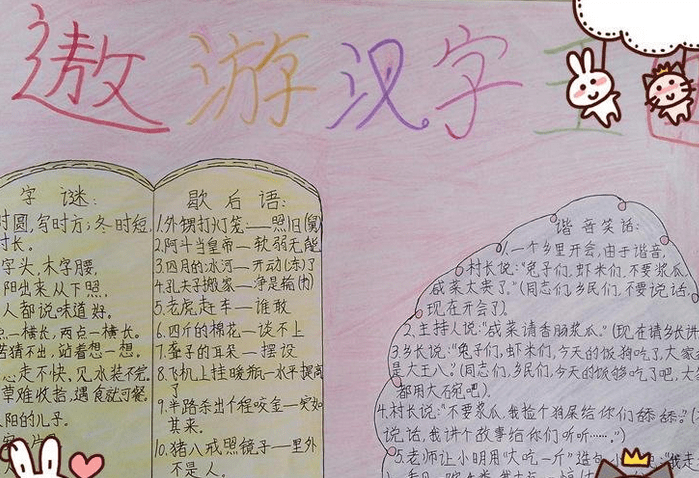 遨游汉字王
字谜:
时圆,写时方;冬时短,
时长。
字头,木字腰,
阳出来从下照,
人都说味道好。
一横长,两点一横长。
猜不出,站着想一想。
走不快,见水装不完。
草难收拾,遇食就可餐。
阳的儿子。
歇后语:
1.外甥打灯笼——照旧(舅)
2.阿斗当皇帝——软弱无能
3.四月的冰河——开动(冻)了
4.孔夫子搬家——净是输(书)
5.老虎赶车——谁敢
6.四斤的棉花——谈不上
7.聋子的耳朵——摆设
8.飞机上挂暖瓶——水平提高
了
9.半路杀出个程咬金——突如
其来。
10.猪八戒照镜子——里外
不是人。
谐音笑话:
1.一个乡里开会,由于谐音,
村长说:“兔子们,虾米们,不要浆瓜,
咸菜太贵了。”(同志们,乡民们,不要说话,
现在开会了)
2.主持人说:“咸菜请香肠浆瓜。”(现在请乡长讲
3.乡长说:“兔子们,虾米们,今天的饭狗吃了,大家
是大王八。”(同志们,乡民们,今天的饭够吃了吧,大
都用大碗吧)
4.村长说:“不要浆瓜,我捡个狗屎给你们舔舔。”(
说话,我讲个故事给你们听听……。”)
5.老师让小明用“大吃一斤”造句,小